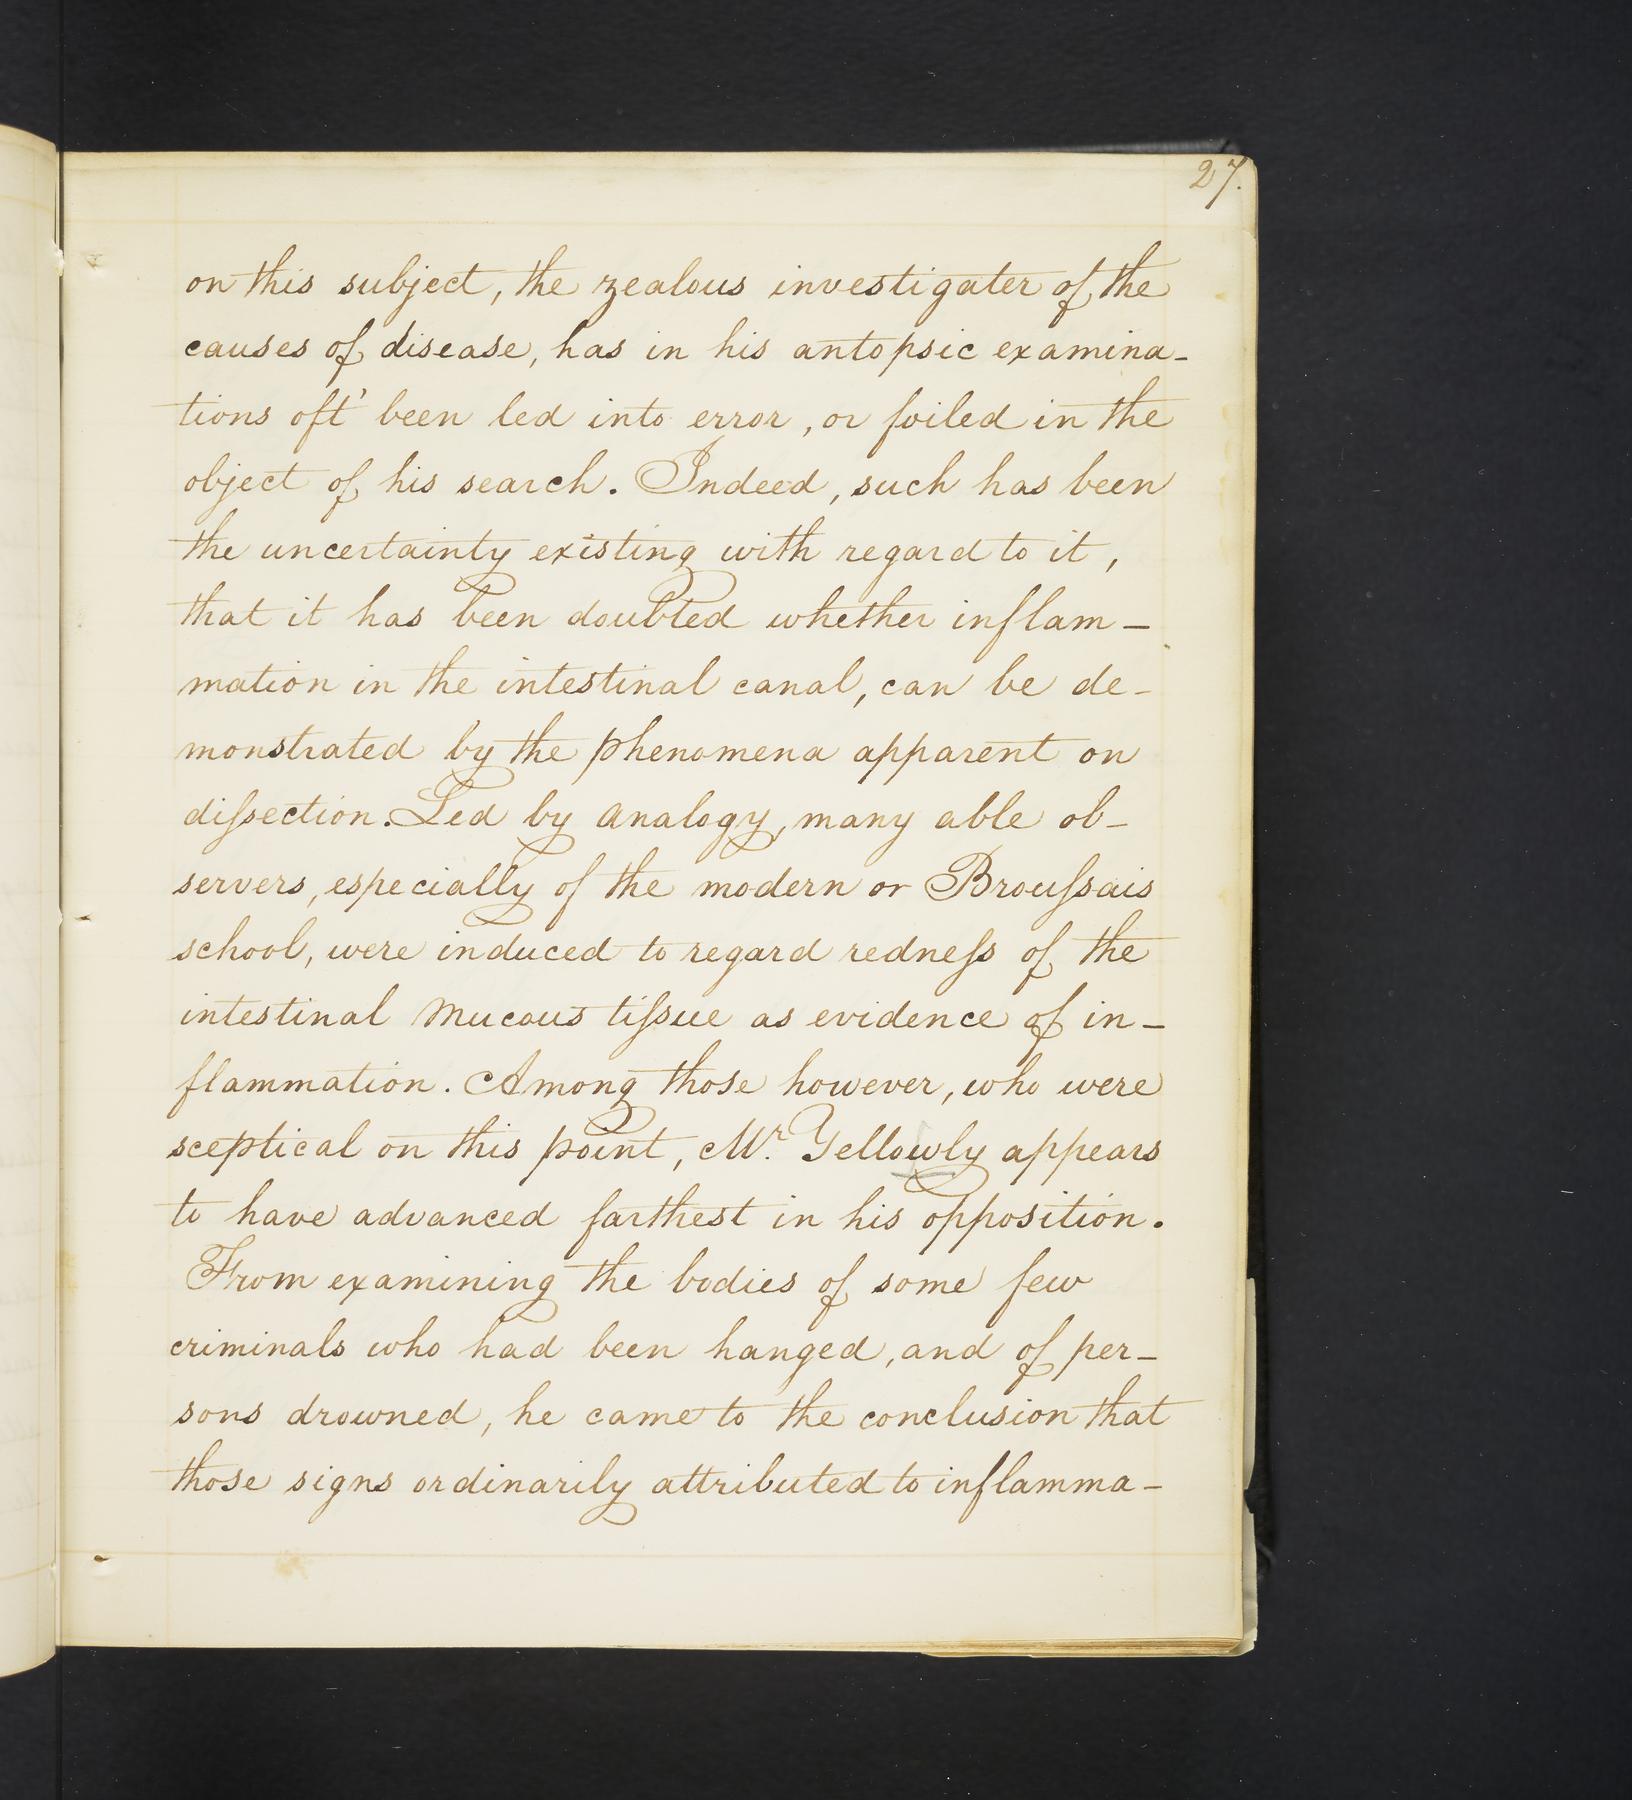 27.
on this subject, the zealous investigater of the
causes of disease, has in his antopsic examina-
tions oft' been led into error, or foiled in the
object of his search. Indeed, such has been
the uncertainty existing with regard to it,
that it has been doubted whether inflam-
mation in the intestinal canal, can be de-
monstrated by the phenomena apparent on
diſsection. Led by analogy, many able ob-
servers, especially of the modern or Brouſsais
school, were induced to regard redneſs of the
intestinal mucous tiſsue as evidence of in-
flammation. Among those however, who were
sceptical on this point, Mr. Yellowly appears
to have advanced farthest in his opposition.
From examining the bodies of some few
criminals who had been hanged, and of per-
sons drowned, he came to the conclusion that
those signs ordinarily attributed to inflamma-